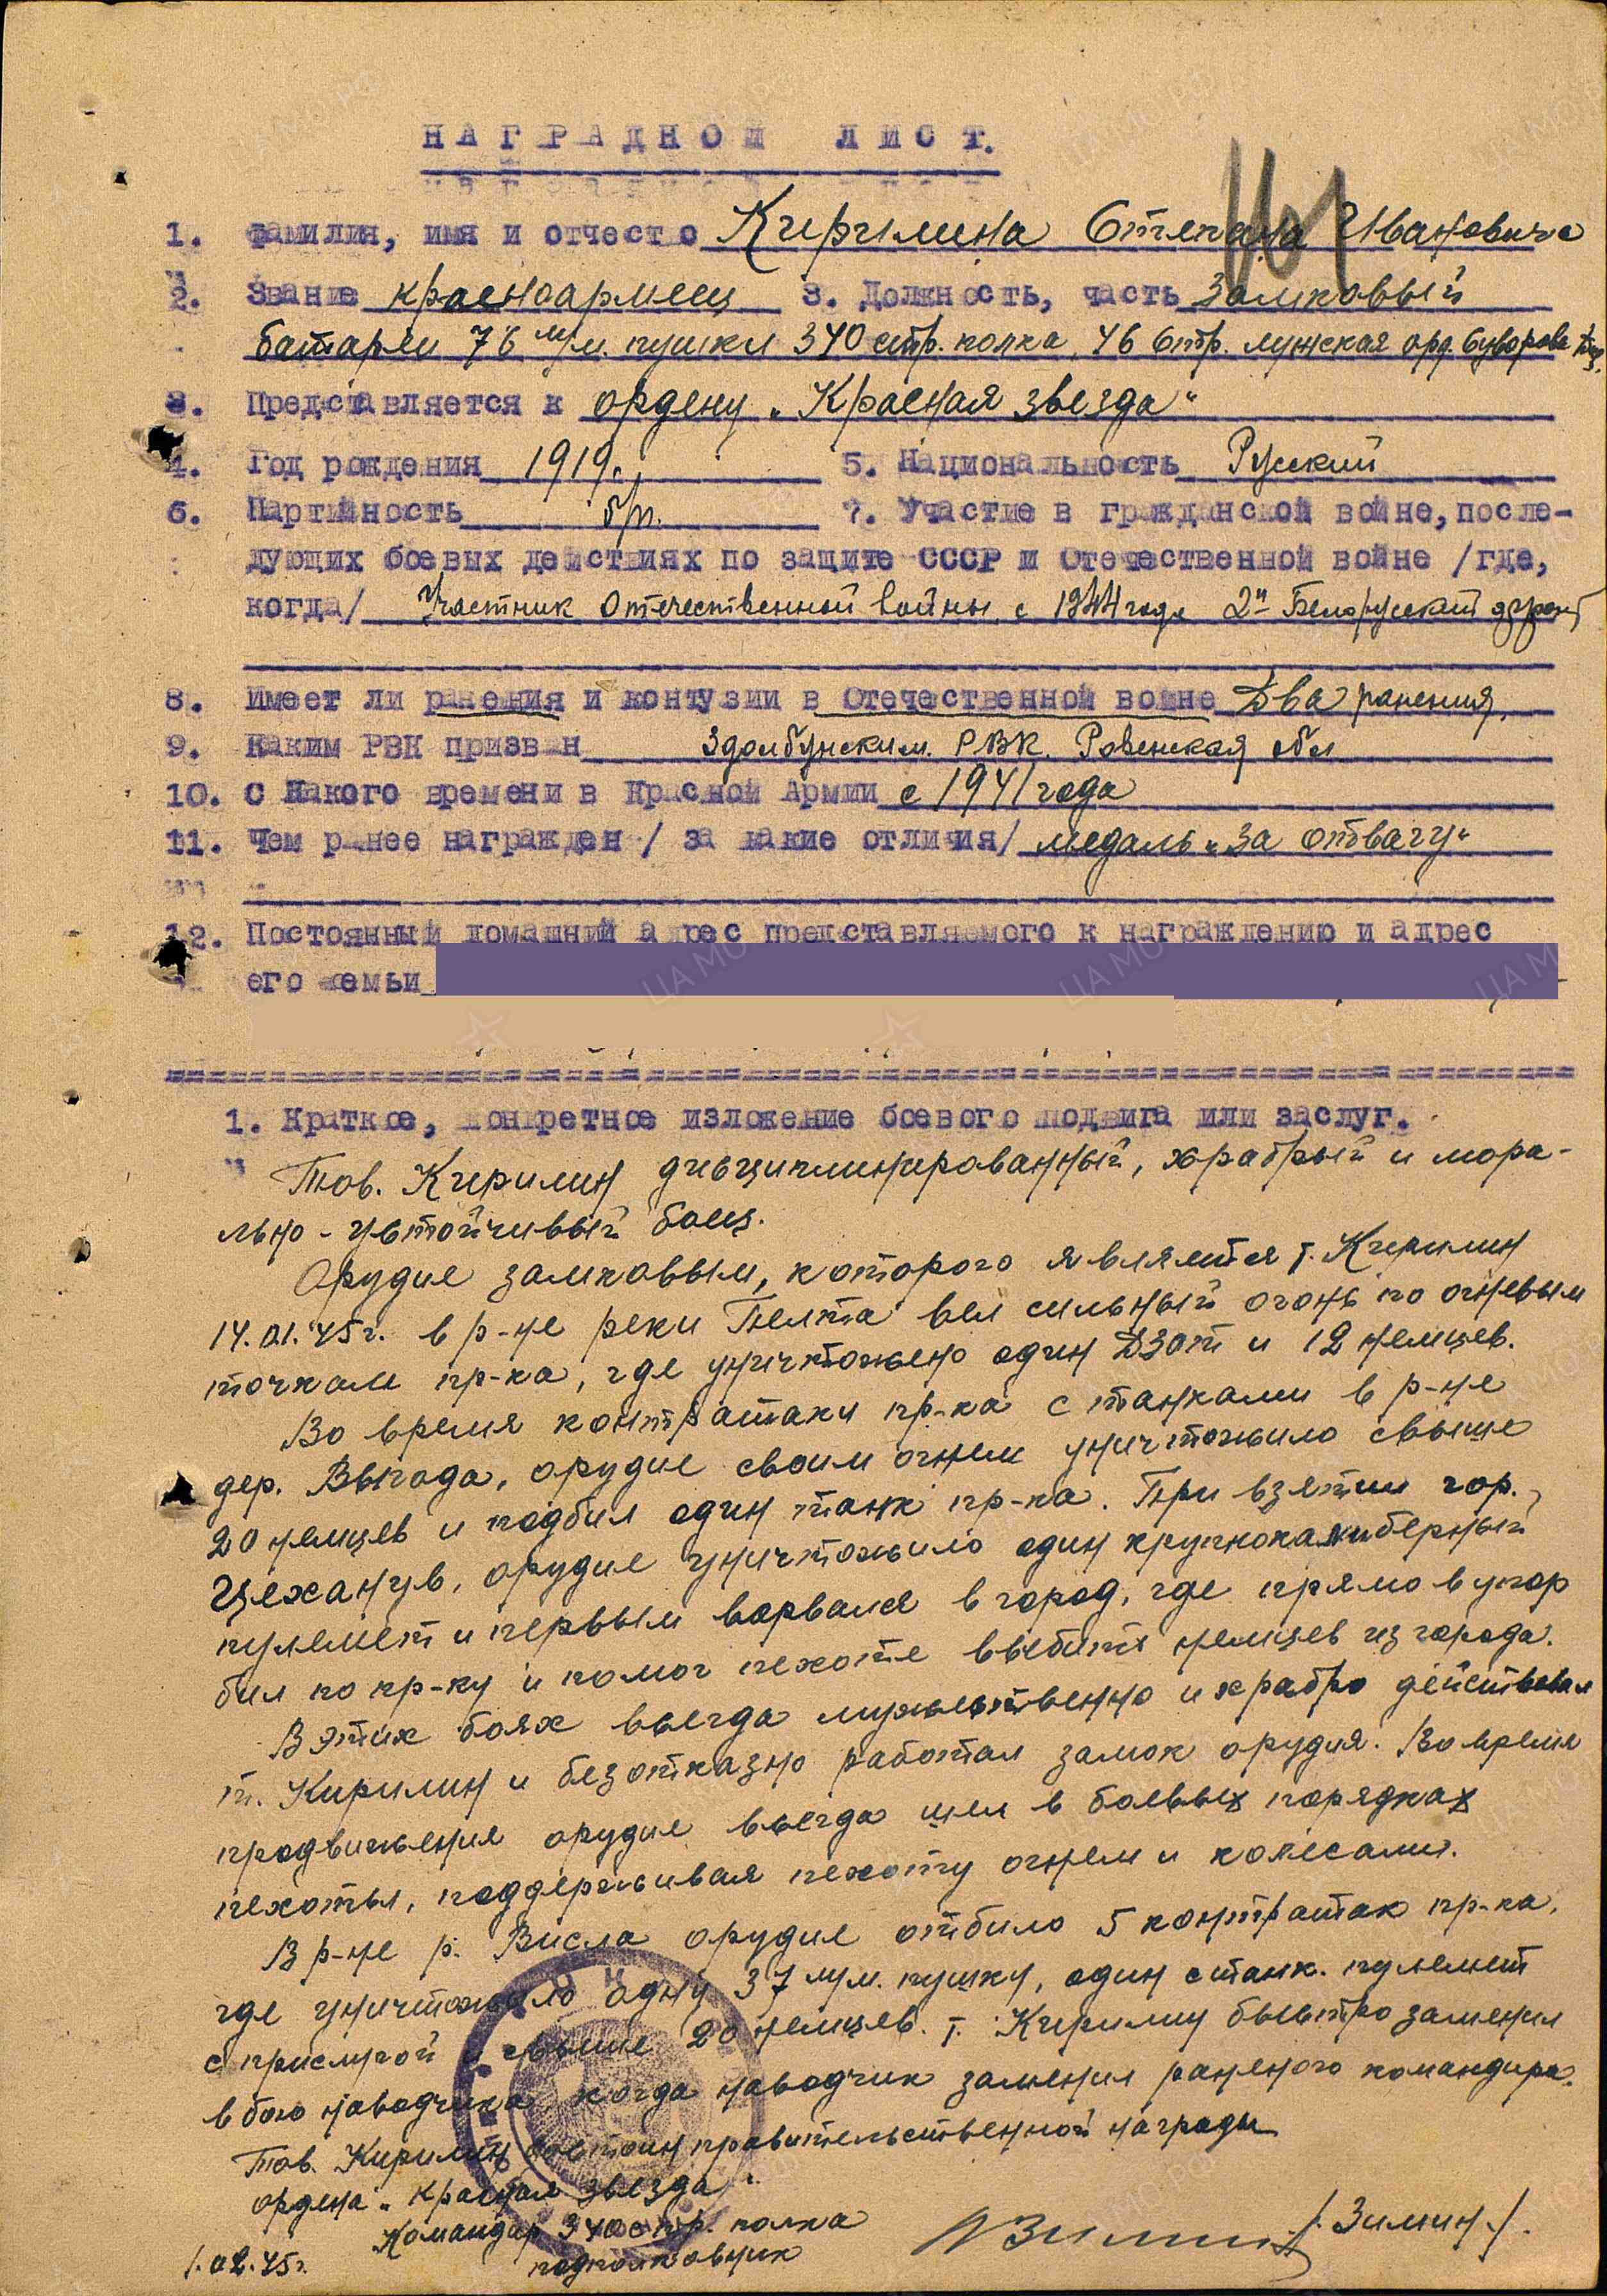 НАГРАДНОЙ ЛИСТ.
1. Фамилия, имя и отчество Кирилина Степана Ивановича
2. Звание красноармеец 3. Должность, часть Замковый
батареи 76 м/м. пушки 340 стр. полка, 46 стр. лужская орд. Суворова див.
3. Представляется к ордену „Красная звезда“
4. Год рождения 1919 г. 5. Национальность Русский
6. Партийность б/п. 7. Участие в гражданской войне, после-
дующих боевых действиях по защите СССР и Отечественной войне /где,
когда/ Участник Отечественной войны с 1944 года 2й Белорусский фронт
8. Имеет ли ранения и контузии в Отечественной войне Два ранения.
9. Каким РВК призван Здолбунским. РВК. Ровенская обл
10. С какого времени в Красной Армии с 1941 года
11. Чем ранее награжден / за какие отличия/ медаль „За отвагу“
12. Постоянный домашний адрес представляемого к награждению и адрес
его семьи
1. Краткое, конкретное изложение боевого подвига или заслуг.
Тов. Кирилин дисциплинированный, храбрый и мора-
льно-устойчивый боец.
Орудие замковым, которого является т. Кирилин
14.01.45 г. в р-не реки Пелта вел сильный огонь по огневым
точкам пр-ка, где уничтожено один Дзот и 12 немцев.
Во время контратаки пр-ка с танками в р-не
дер. Выгода, орудие своим огнем уничтожило свыше
20 немцев и подбил один танк пр-ка. При взятии гор.
Цеханув, орудие уничтожило один крупнокалиберный
пулемет и первым ворвался в город, где прямо в упор
бил по пр-ку и помог пехоте выбить немцев из города.
В этих боях всегда мужественно и храбро действовал
т. Кирилин и безотказно работал замок орудия. Во время
продвижения орудие всегда шел в боевых порядках
пехоты, поддерживая пехоту огнем и колесами.
В р-не р. Висла орудие отбило 5 контратак пр-ка,
где уничтожило одну 37 м/м. пушку, один станк. пулемет
с прислугой и свыше 20 немцев. т. Кирилин быстро заменил
в бою наводчика, когда наводчик заменил раненого командира.
Тов. Кирилин достоин правительственной награды
ордена „Красная звезда“.
Командир 340 стр. полка
подполковник /Зимин/.
1.02.45 г.
ЦАМО.РФ